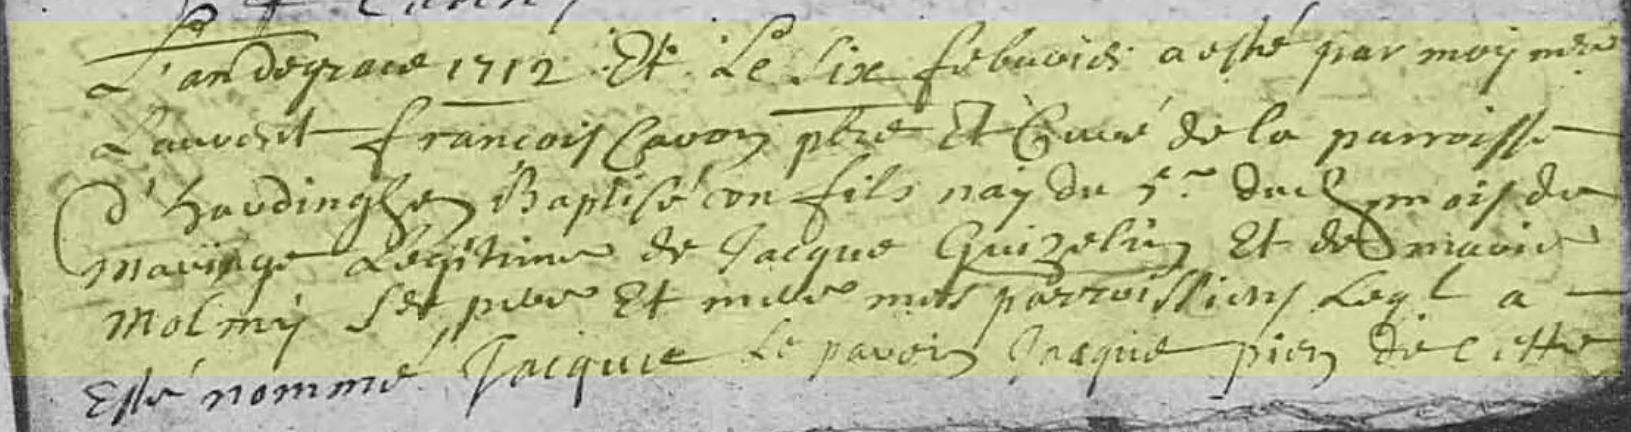 L'an de grace 1712 Et Le Six febvrier a esté par moy me
Laurent francois Cavon pbre Et Curé de la parroisse
d'hardinghen Baptisé un fils nay du 5e dud mois du
mariage Legitime de Jacque Guizelin Et de marie
Molmÿ Ses pere Et mere mes parroissiens Leql a
Esté nommé Jacque Le parein Jacque pien de cette